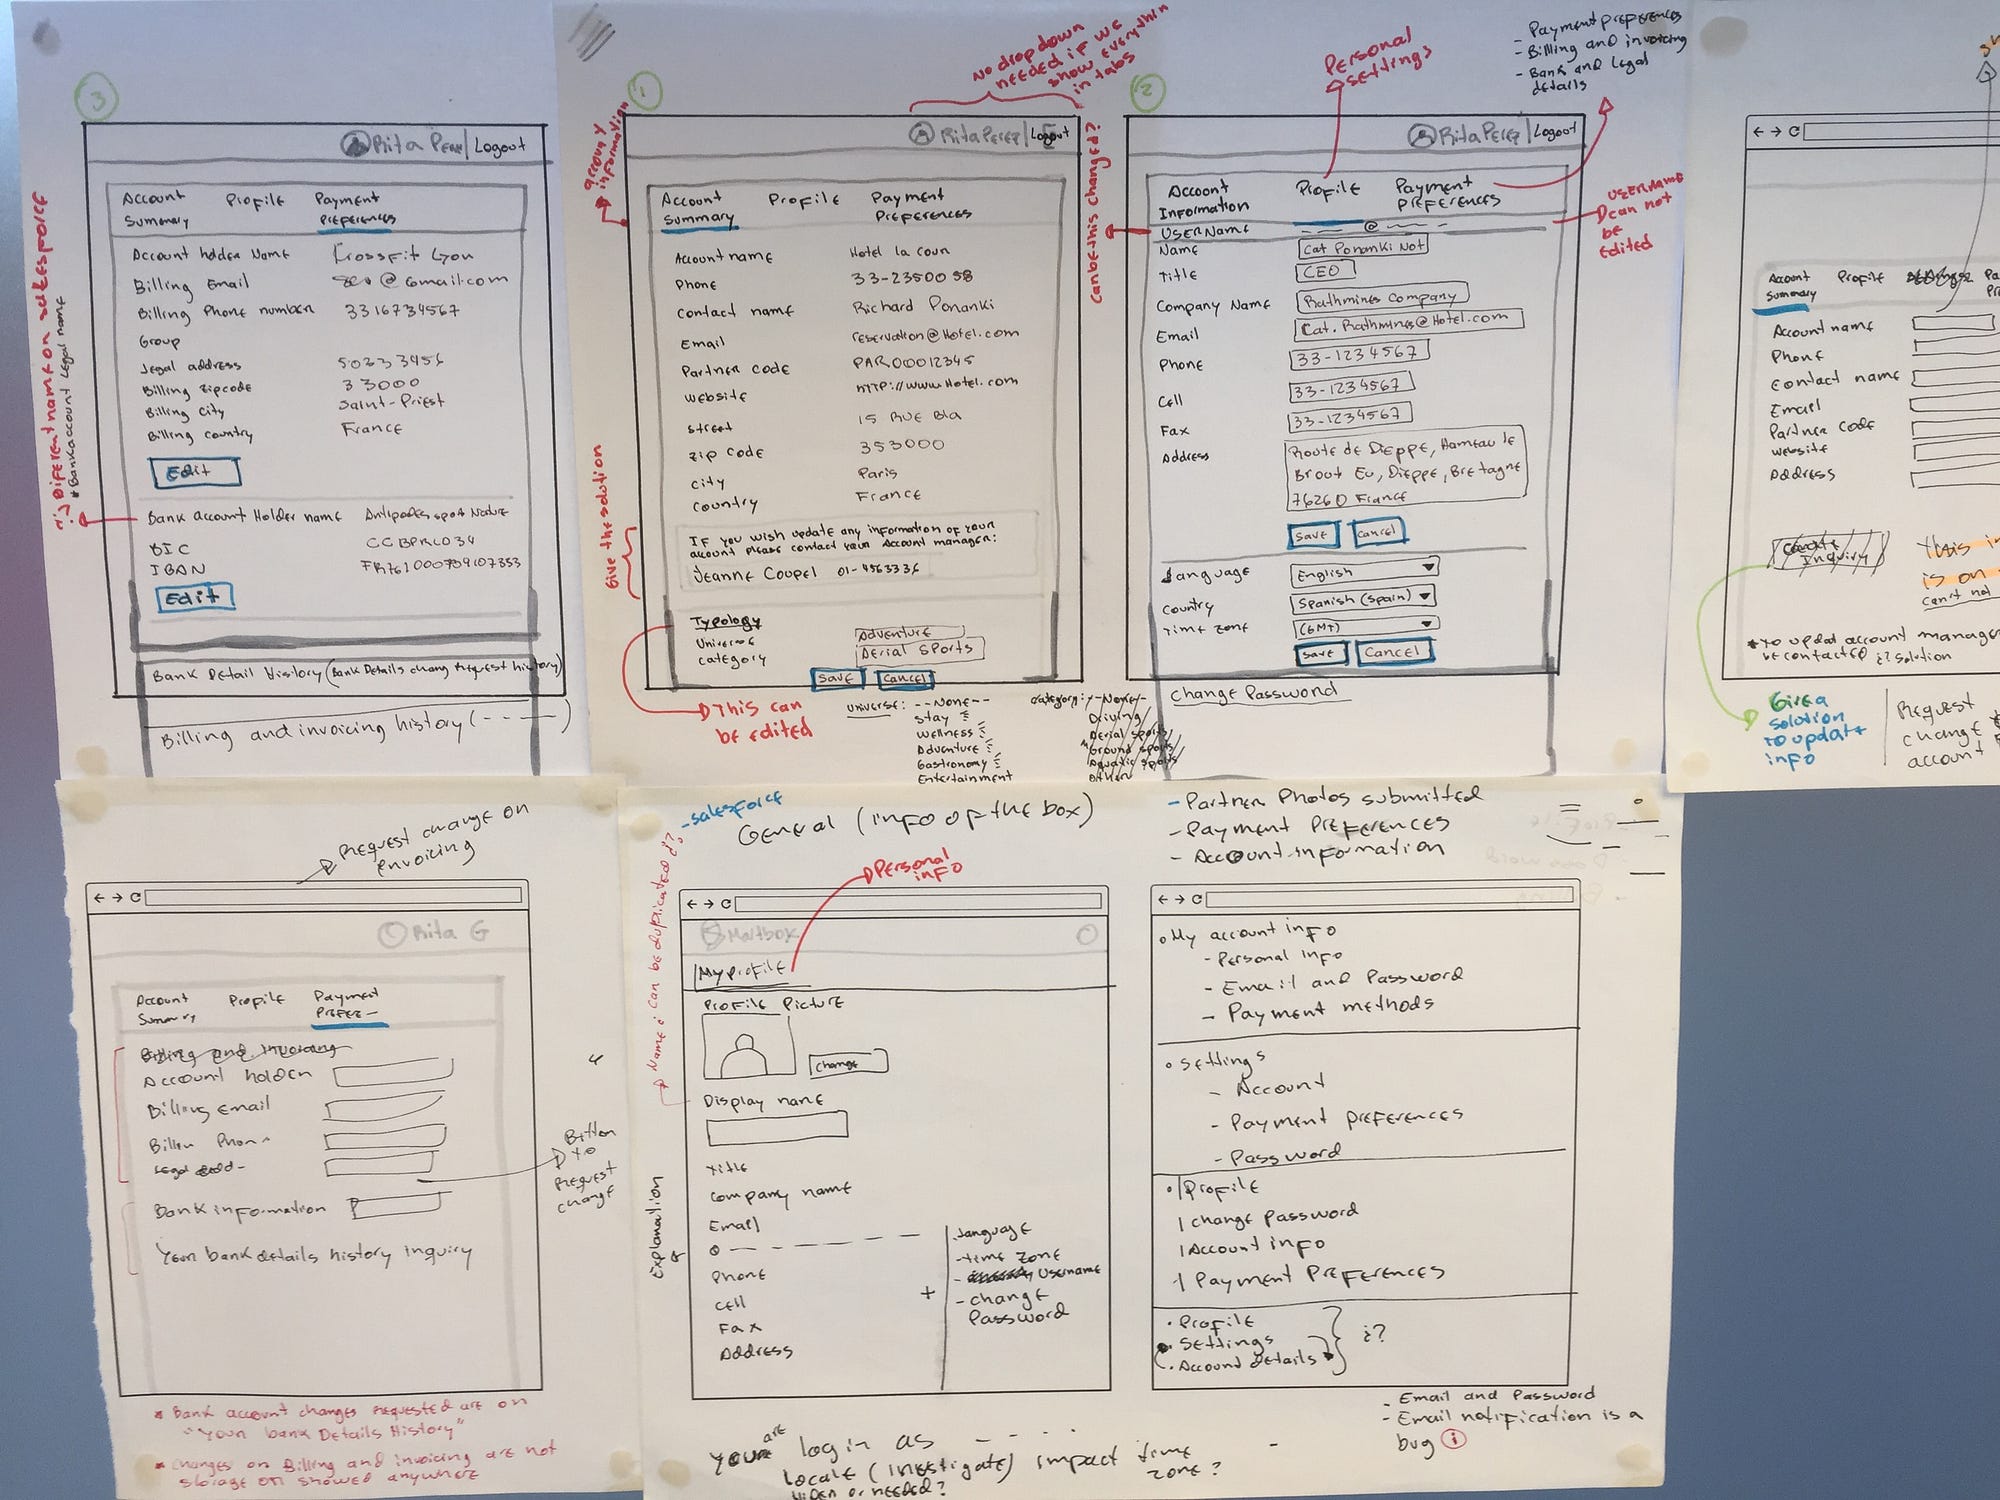 3
Rita Perez | Logout
Account Summary
Profile
Payment Preferences
Account holder Name
Crossfit Lyon
Billing Email
seo@Gmail.com
Billing Phone number
3316734567
Group
Legal address
50333456
Billing zipcode
33000
Billing city
Saint-Priest
Billing country
France
Edit
Bank account Holder name
Antipodes sport Nature
BIC
CCBPRLO34
IBAN
Edit
Bank Detail History (Bank Details change request history)
Billing and invoicing history (- - - —)
Different name on salesforce
* Bank account Legal name
1
No dropdown
needed if we
show everything
in tabs
account information
Rita Perez | Logout
Account Summary
Profile
Payment Preferences
Account name
Hotel la coun
Phone
33-2350058
Contact name
Richard Ponanki
Email
reservation@Hotel.com
Partner code
PAR00012345
website
HTTP://www.Hotel.com
street
15 Rue Bla
zip code
353000
city
Paris
Country
France
If you wish update any information of your
account please contact your Account manager:
Jeanne Coupel 01-4563336
Give the solution
Typology
Universe
Adventure
category
Aerial Sports
Save
Cancel
This can
be edited
universe: --None--
stay
wellness
Adventure
Gastronomy
Entertainment
category: --None--
Driving
Aerial sports
Ground sports
Aquatic sports
Other
2
Personal
settings
- Payment preferences
- Billing and invoicing
- Bank and Legal
details
Rita Perez | Logout
Account Information
Profile
Payment Preferences
can be this changed?
UserName
- - @ - -
username
can not
be
edited
Name
Cat Ponanki Not
Title
CEO
Company Name
Rathmines Company
Email
Cat.Rathmines@Hotel.com
Phone
33-1234567
Cell
33-1234567
Fax
33-1234567
Address
Route de Dieppe, Hameau le
Brout Eu, Dieppe, Bretagne
76260 France
Save
Cancel
Language
English
Country
Spanish (Spain)
Time zone
(GMT)
Save
Cancel
Change Password
Account Summary
Profile
Account name
Phone
Contact name
Email
Partner code
website
Address
Inquiry
This
is on
can't not
* To updat account manager
be contacted ¿? solution
Give a
solution
to update
info
Request
change
account
Request change on
invoicing
Rita G
Account Summary
Profile
Payment Prefer-
Billing and Invoicing
Account holder
Billing email
Billin Phon
Legal add-
Bank information
Your bank details history inquiry
Button
to
request
change
* Bank account changes requested are on
"Your bank Details History"
* Changes on Billing and invoicing are not
storage or showed anywhere
- salesforce
General (info of the box)
Personal
info
Name ¿can be duplicated?
My profile
Profile Picture
Change
Display name
Title
Company name
Email
Phone
Cell
Fax
Address
Explanation
+
- Language
- Time zone
- Username
- change
Password
Your are login as - - - .
Locale (investigate) impact time
zone?
Hiden or needed?
- Partner Photos submitted
- Payment preferences
- Account information
• My account info
- Personal info
- Email and Password
- Payment methods
• Settings
- Account
- Payment preferences
- Password
• Profile
| change password
| Account info
| Payment Preferences
• Profile
• Settings
• Account details
¿?
- Email and Password
- Email notification is a
bug